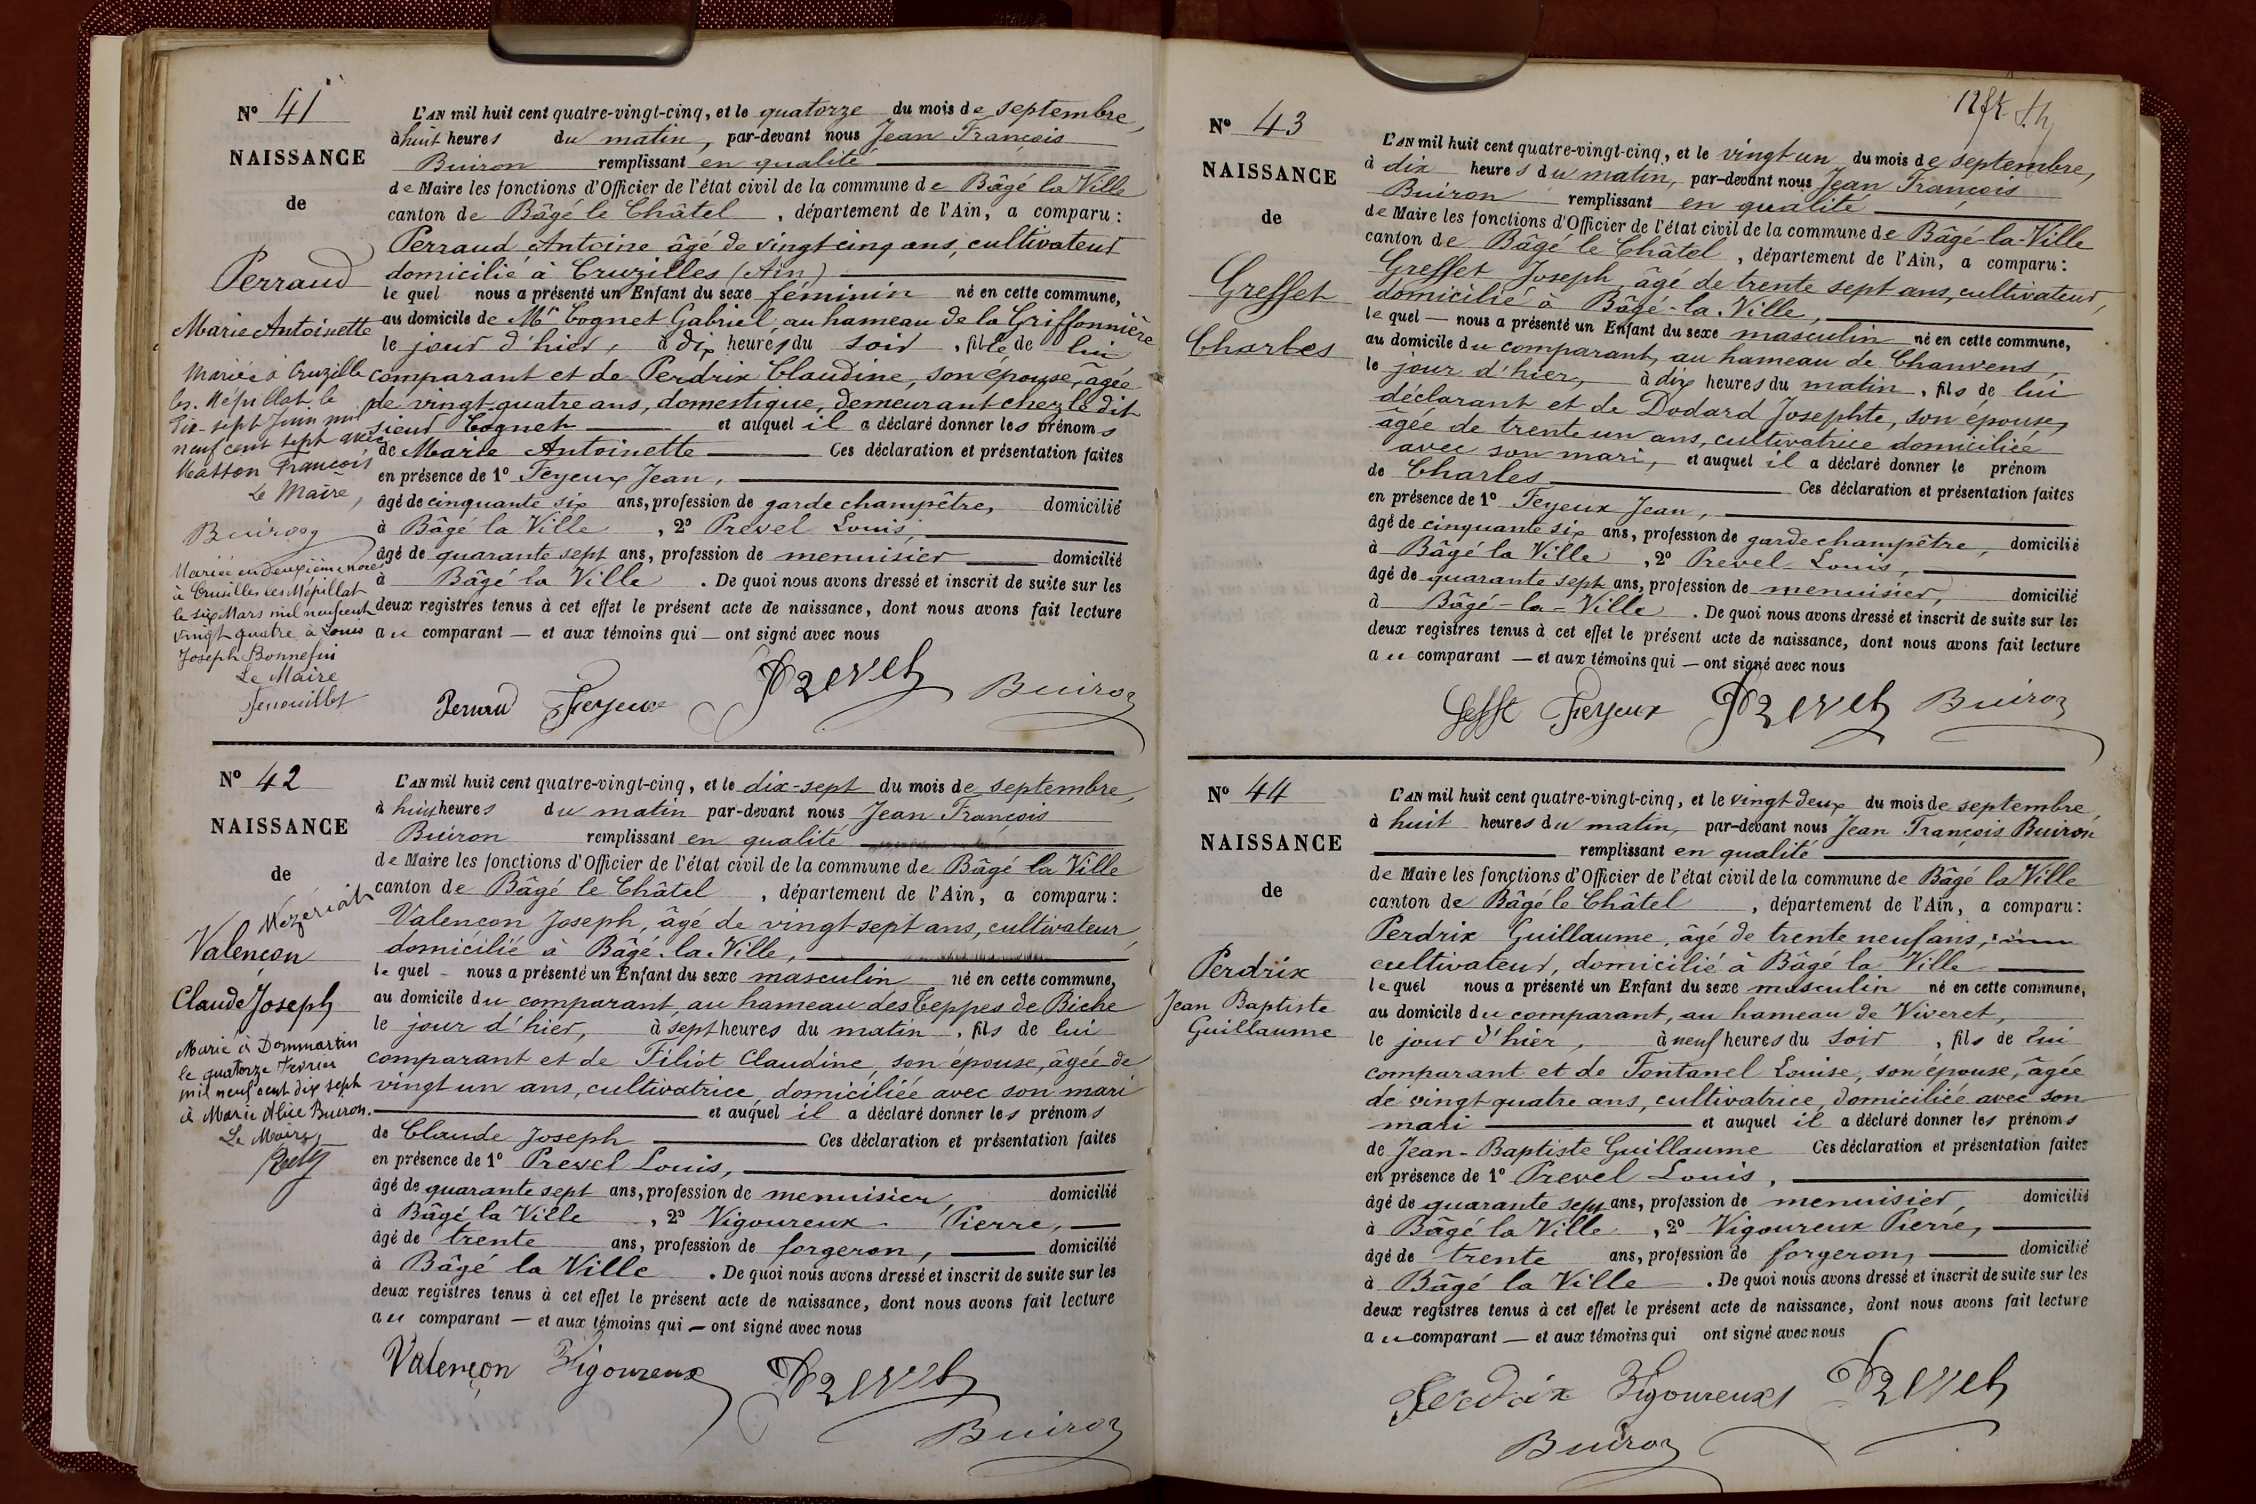 Nº 41
NAISSANCE
de
Perraud
Marie Antoinette
Mariée à Cruzille
les-Mépillat le
dix-sept Juin mil
neuf cent sept avec
Matton François
Le Maire,
Buiron
Mariée en deuxième noces
à Cruzilles les Mépillat
le six Mars mil neuf cent
vingt quatre à Louis
Joseph Bonnefin
Le Maire
Fenouillet
L'AN mil huit cent quatre-vingt-cinq, et le quatorze du mois de septembre,
à huit heures du matin, par-devant nous Jean François
Buiron remplissant en qualité
de Maire les fonctions d'Officier de l'état civil de la commune de Bâgé la Ville
canton de Bâgé le Châtel, département de l'Ain, a comparu :
Perraud Antoine âgé de vingt cinq ans, cultivateur
domicilié à Cruzilles (Ain)
le quel nous a présenté un Enfant du sexe féminin né en cette commune,
au domicile de Mr Cognet Gabriel, au hameau de la Griffonnière
le jour d'hier, à dix heures du soir, fille de lui
comparant et de Perdrix Claudine, son épouse, âgée
de vingt-quatre ans, domestique, demeurant chez le dit
sieur Cognet et auquel il a déclaré donner les prénoms
de Marie Antoinette Ces déclaration et présentation faites
en présence de 1º Feyeux Jean,
âgé de cinquante six ans, profession de garde champêtre, domicilié
à Bâgé la Ville, 2º Prevel Louis,
âgé de quarante sept ans, profession de menuisier domicilié
à Bâgé la Ville. De quoi nous avons dressé et inscrit de suite sur les
deux registres tenus à cet effet le présent acte de naissance, dont nous avons fait lecture
au comparant — et aux témoins qui — ont signé avec nous
Perraud Feyeux Prevel Buiron
Nº 42
NAISSANCE
de
Mézériat
Valençon
Claude Joseph
Marié à Dommartin
le quatorze Février
mil neuf cent dix sept
à Marie Alice Buiron.
Le Maire,
L'AN mil huit cent quatre-vingt-cinq, et le dix-sept du mois de septembre,
à huit heures du matin par-devant nous Jean François
Buiron remplissant en qualité
de Maire les fonctions d'Officier de l'état civil de la commune de Bâgé la Ville
canton de Bâgé le Châtel, département de l'Ain, a comparu :
Valençon Joseph, âgé de vingt-sept ans, cultivateur,
domicilié à Bâgé-la-Ville,
le quel - nous a présenté un Enfant du sexe masculin né en cette commune,
au domicile du comparant, au hameau des Teppes de Biche
le jour d'hier, à sept heures du matin, fils de lui
comparant et de Filiot Claudine, son épouse, âgée de
vingt un ans, cultivatrice, domiciliée avec son mari
et auquel il a déclaré donner les prénoms
de Claude Joseph Ces déclaration et présentation faites
en présence de 1º Prevel Louis,
âgé de quarante sept ans, profession de menuisier, domicilié
à Bâgé la Ville, 2º Vigoureux Pierre,
âgé de trente ans, profession de forgeron, domicilié
à Bâgé la Ville. De quoi nous avons dressé et inscrit de suite sur les
deux registres tenus à cet effet le présent acte de naissance, dont nous avons fait lecture
au comparant — et aux témoins qui — ont signé avec nous
Valençon Vigoureux Prevel
Buiron
Nº 43
NAISSANCE
de
Greffet
Charles
L'AN mil huit cent quatre-vingt-cinq, et le vingt un du mois de septembre,
à dix heures du matin, par-devant nous Jean François
Buiron remplissant en qualité
de Maire les fonctions d'Officier de l'état civil de la commune de Bâgé-la-Ville
canton de Bâgé le Châtel, département de l'Ain, a comparu :
Greffet Joseph, âgé de trente sept ans, cultivateur,
domicilié à Bâgé-la-Ville,
le quel — nous a présenté un Enfant du sexe masculin né en cette commune,
au domicile du comparant, au hameau de Chanvens,
le jour d'hier, à dix heures du matin, fils de lui
déclarant et de Dodard Josephte, son épouse,
âgée de trente un ans, cultivatrice domiciliée
avec son mari, et auquel il a déclaré donner le prénom
de Charles Ces déclaration et présentation faites
en présence de 1º Feyeux Jean,
âgé de cinquante six ans, profession de garde champêtre, domicilié
à Bâgé la Ville, 2º Prevel Louis,
âgé de quarante sept ans, profession de menuisier, domicilié
à Bâgé-la-Ville. De quoi nous avons dressé et inscrit de suite sur les
deux registres tenus à cet effet le présent acte de naissance, dont nous avons fait lecture
au comparant — et aux témoins qui — ont signé avec nous
Feyeux Prevel Buiron
Nº 44
NAISSANCE
de
Perdrix
Jean Baptiste
Guillaume
L'AN mil huit cent quatre-vingt-cinq, et le vingt deux du mois de septembre,
à huit heures du matin, par-devant nous Jean François Buiron
remplissant en qualité
de Maire les fonctions d'Officier de l'état civil de la commune de Bâgé la Ville
canton de Bâgé le Châtel, département de l'Ain, a comparu :
Perdrix Guillaume, âgé de trente neuf ans,
cultivateur, domicilié à Bâgé la Ville
le quel nous a présenté un Enfant du sexe masculin né en cette commune,
au domicile du comparant, au hameau de Viveret,
le jour d'hier, à neuf heures du soir, fils de lui
comparant et de Fontanel Louise, son épouse, âgée
de vingt quatre ans, cultivatrice, domiciliée avec son
mari et auquel il a déclaré donner les prénoms
de Jean-Baptiste Guillaume Ces déclaration et présentation faites
en présence de 1º Prevel Louis,
âgé de quarante sept ans, profession de menuisier, domicilié
à Bâgé la Ville, 2º Vigoureux Pierre,
âgé de trente ans, profession de forgeron, domicilié
à Bâgé la Ville. De quoi nous avons dressé et inscrit de suite sur les
deux registres tenus à cet effet le présent acte de naissance, dont nous avons fait lecture
au comparant — et aux témoins qui ont signé avec nous
Perdrix Vigoureux Prevel
Buiron